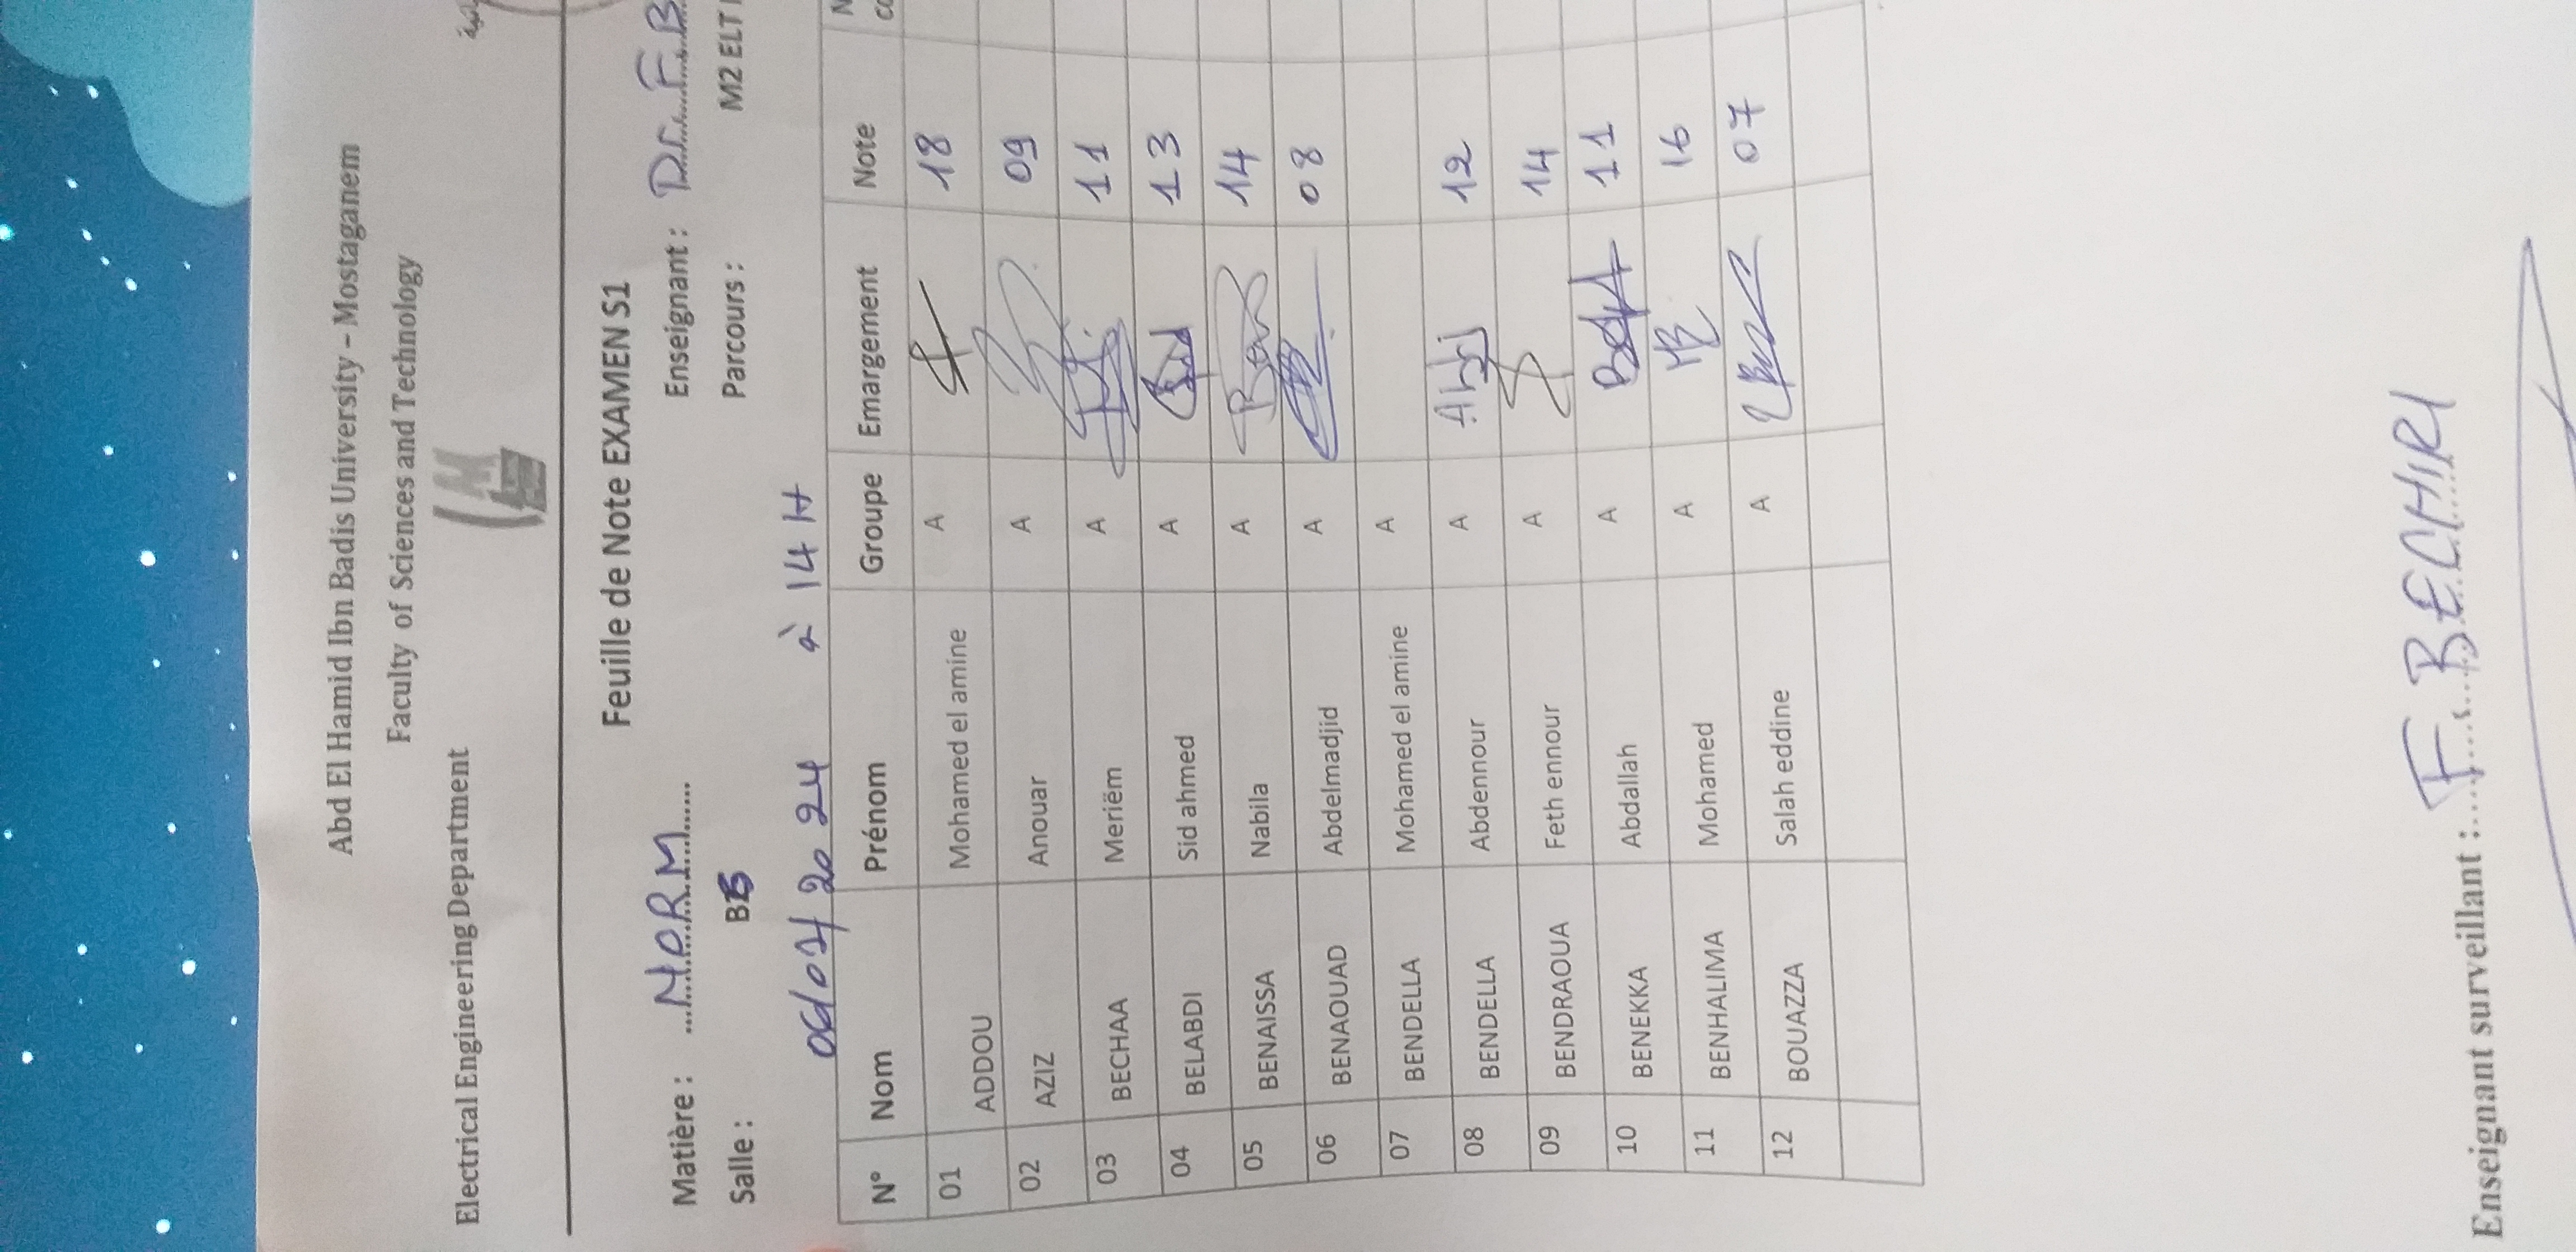 Abd El Hamid Ibn Badis University – Mostaganem
Faculty of Sciences and Technology
Electrical Engineering Department
Feuille de Note EXAMEN S1
Matière : Enseignant : Dr. F. B
Salle : Parcours : M2 ELT
à 14 H
N° Nom Prénom Groupe Emargement Note
01 ADDOU Mohamed el amine A 18
02 AZIZ Anouar A 09
03 BECHAA Meriëm A 11
04 BELABDI Sid ahmed A 13
05 BENAISSA Nabila A 14
06 BENAOUAD Abdelmadjid A 08
07 BENDELLA Mohamed el amine A
08 BENDELLA Abdennour A 12
09 BENDRAOUA Feth ennour A 14
10 BENEKKA Abdallah A 11
11 BENHALIMA Mohamed A 16
12 BOUAZZA Salah eddine A 07
Enseignant surveillant : F. BECHIRI